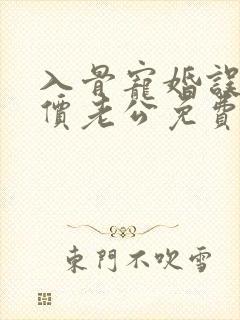 入骨寵婚誤
價老公免費
東門不吹雪